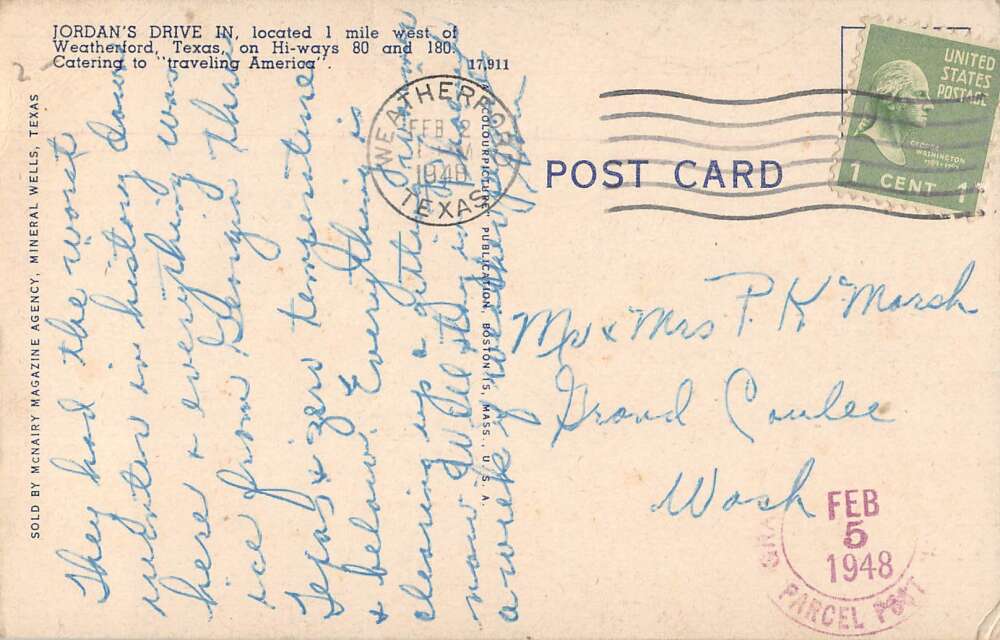 JORDAN'S DRIVE IN, located 1 mile west of
Weatherford, Texas, on Hi-ways 80 and 180.
Catering to "traveling America".
17,911
SOLD BY MCNAIRY MAGAZINE AGENCY, MINERAL WELLS, TEXAS
COLOURPICTURE PUBLICATION, BOSTON 15, MASS., U. S. A.
WEATHERFORD
FEB 2
1948
TEXAS
POST CARD
UNITED
STATES
POSTAGE
GEORGE
WASHINGTON
1 CENT 1
They had the worst
winter in history down
here & everything was
ice from Georgia thru
Texas & zero temperature
& below. Everything is
clearing up & getting
now. Will stay in
a week
Mr & Mrs P. K. Marsh
Grand Coulee
Wash
FEB
5
1948
PARCEL POST